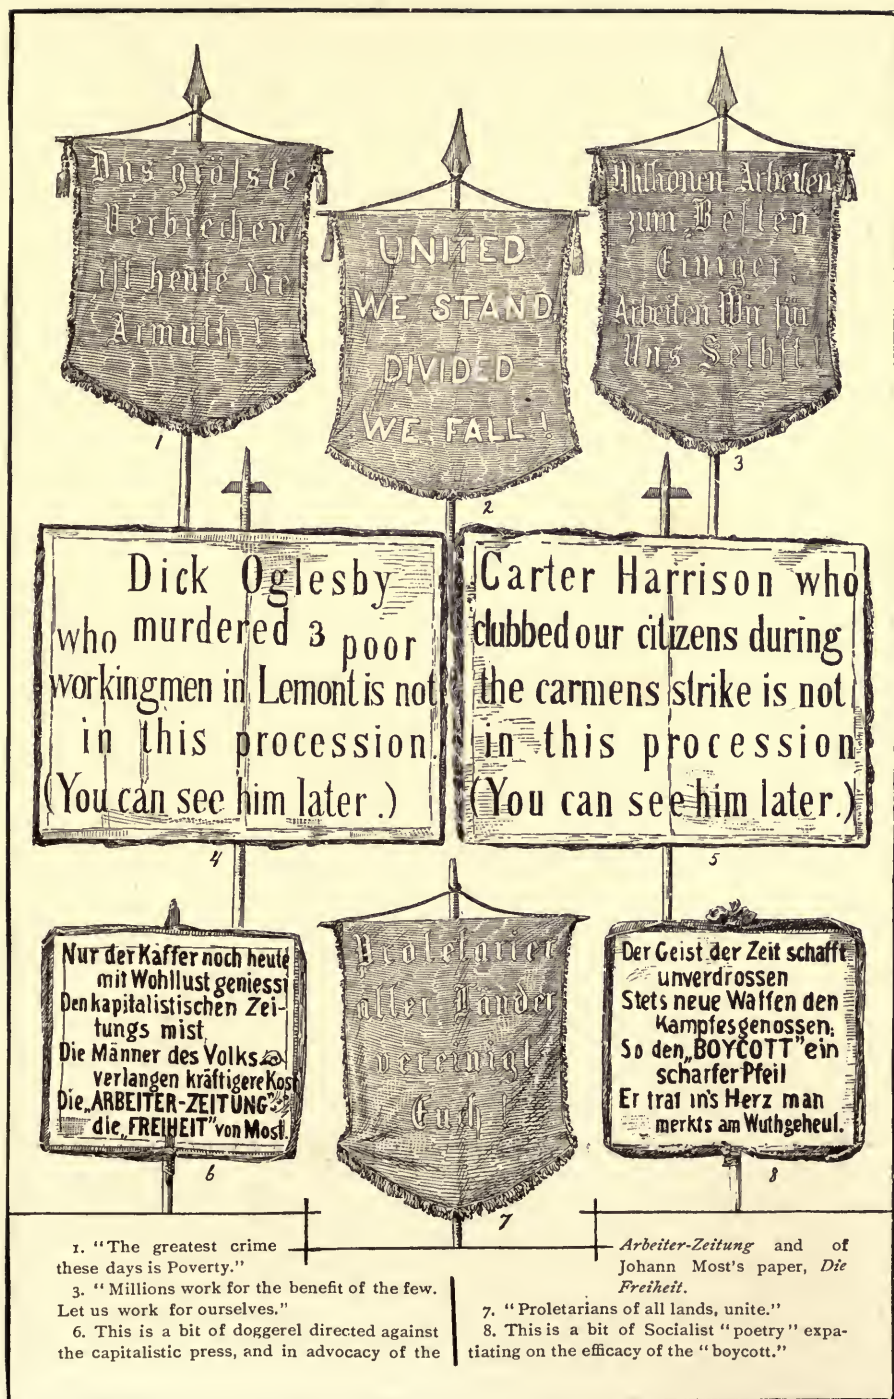 Das gröſste
Verbrechen
iſt heute die
Armuth!
1
UNITED
WE STAND,
DIVIDED
WE FALL!
2
Millionen Arbeiten
zum „Beſten“
Einiger,
Arbeiten Wir für
Uns Selbſt!
3
Dick Oglesby
who murdered 3 poor
workingmen in Lemont is not
in this procession.
(You can see him later.)
4
Carter Harrison who
clubbed our citizens during
the carmens strike is not
in this procession
(You can see him later.)
5
Nur der Kaffer noch heute
mit Wohllust geniesst
Den kapitalistischen Zei-
tungs mist,
Die Männer des Volks
verlangen kräftigere Kost
Die „ARBEITER-ZEITUNG“
die „FREIHEIT“ von Most.
6
Proletarier
aller Länder
vereinigt
Euch!
7
Der Geist der Zeit schafft
unverdrossen
Stets neue Waffen den
Kampfesgenossen;
So den „BOYCOTT“ ein
scharfer Pfeil
Er traf in's Herz man
merkts am Wuthgeheul.
8
1. "The greatest crime
these days is Poverty."
3. "Millions work for the benefit of the few.
Let us work for ourselves."
6. This is a bit of doggerel directed against
the capitalistic press, and in advocacy of the
Arbeiter-Zeitung and of
Johann Most's paper, Die
Freiheit.
7. "Proletarians of all lands, unite."
8. This is a bit of Socialist "poetry" expa-
tiating on the efficacy of the "boycott."